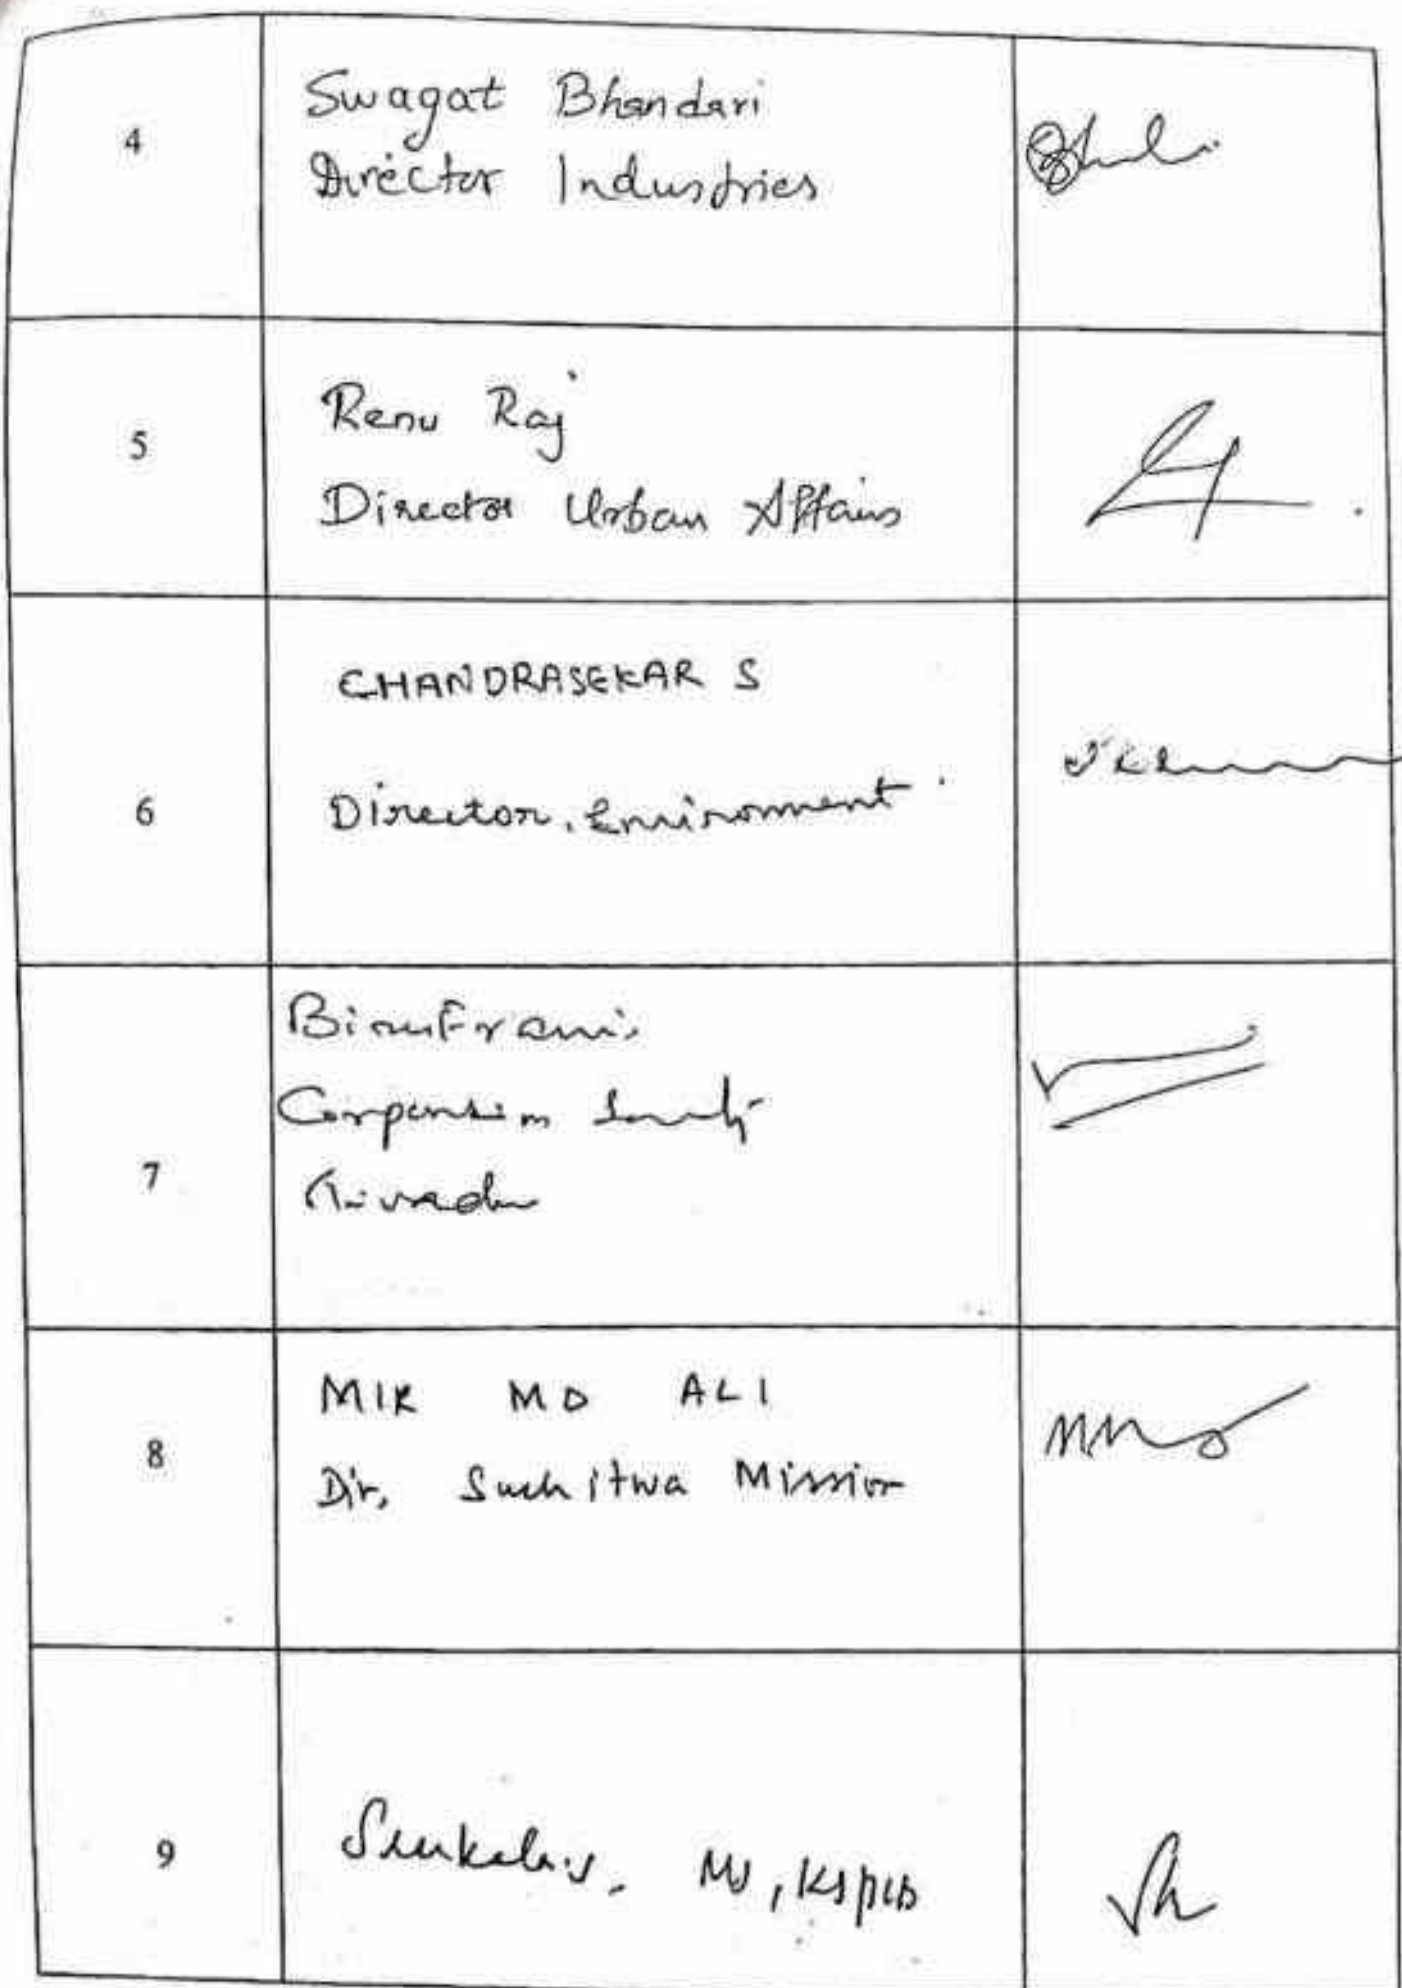 4
Swagat Bhandari
Director Industries
5
Renu Raj
Director Urban Affairs
6
CHANDRASEKAR S
Director, Environment
7
Binu Francis
Corporation
8
MIR MD ALI
Dir, Suchitwa Mission
9
Sreekala S, MS, KSPCB